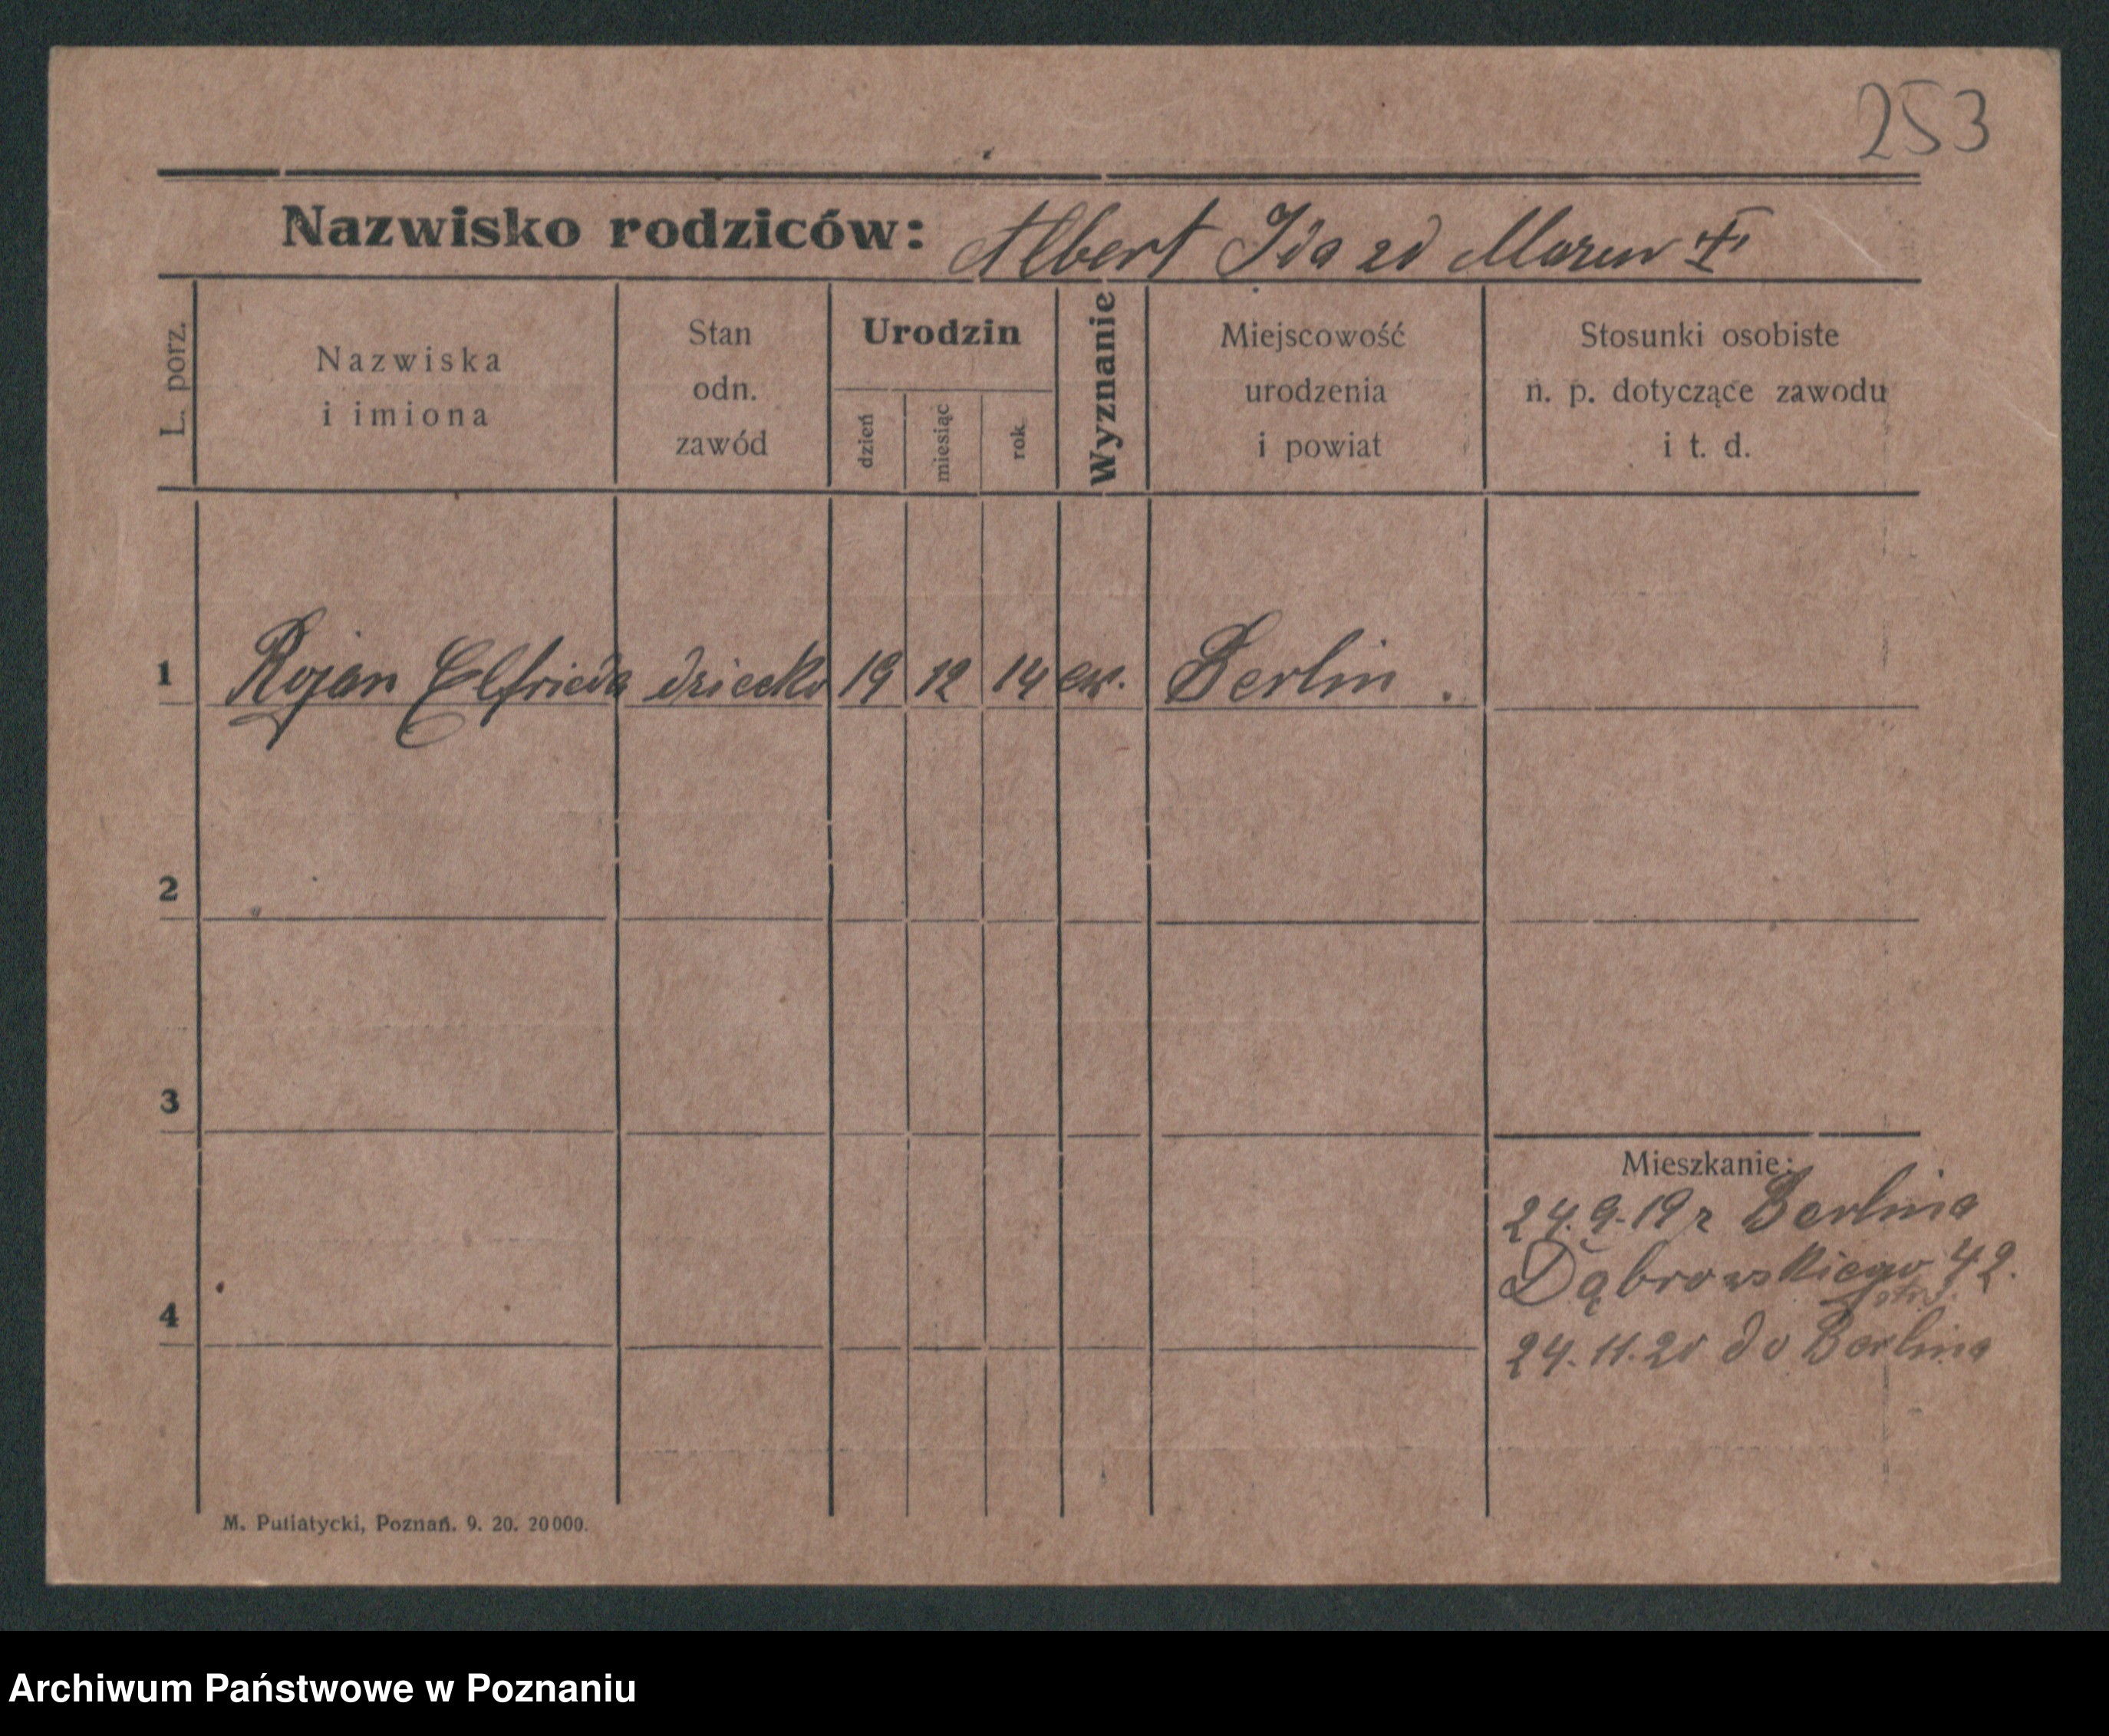 253
Nazwisko rodziców: Albert Ida zd
L. porz.
Nazwiska
i imiona
Stan
odn.
zawód
Urodzin
dzień
miesiąc
rok.
Wyznanie
Miejscowość
urodzenia
i powiat
Stosunki osobiste
n. p. dotyczące zawodu
i t. d.
1 Rojan Elfrieda dziecko 19 12 14 ew. Berlin.
2
3
Mieszkanie:
24.9.19 z Berlina
Dąbrowskiego 42.
4
24.11.20 do Berlina
M. Putiatycki, Poznań. 9. 20. 20000.
Archiwum Państwowe w Poznaniu